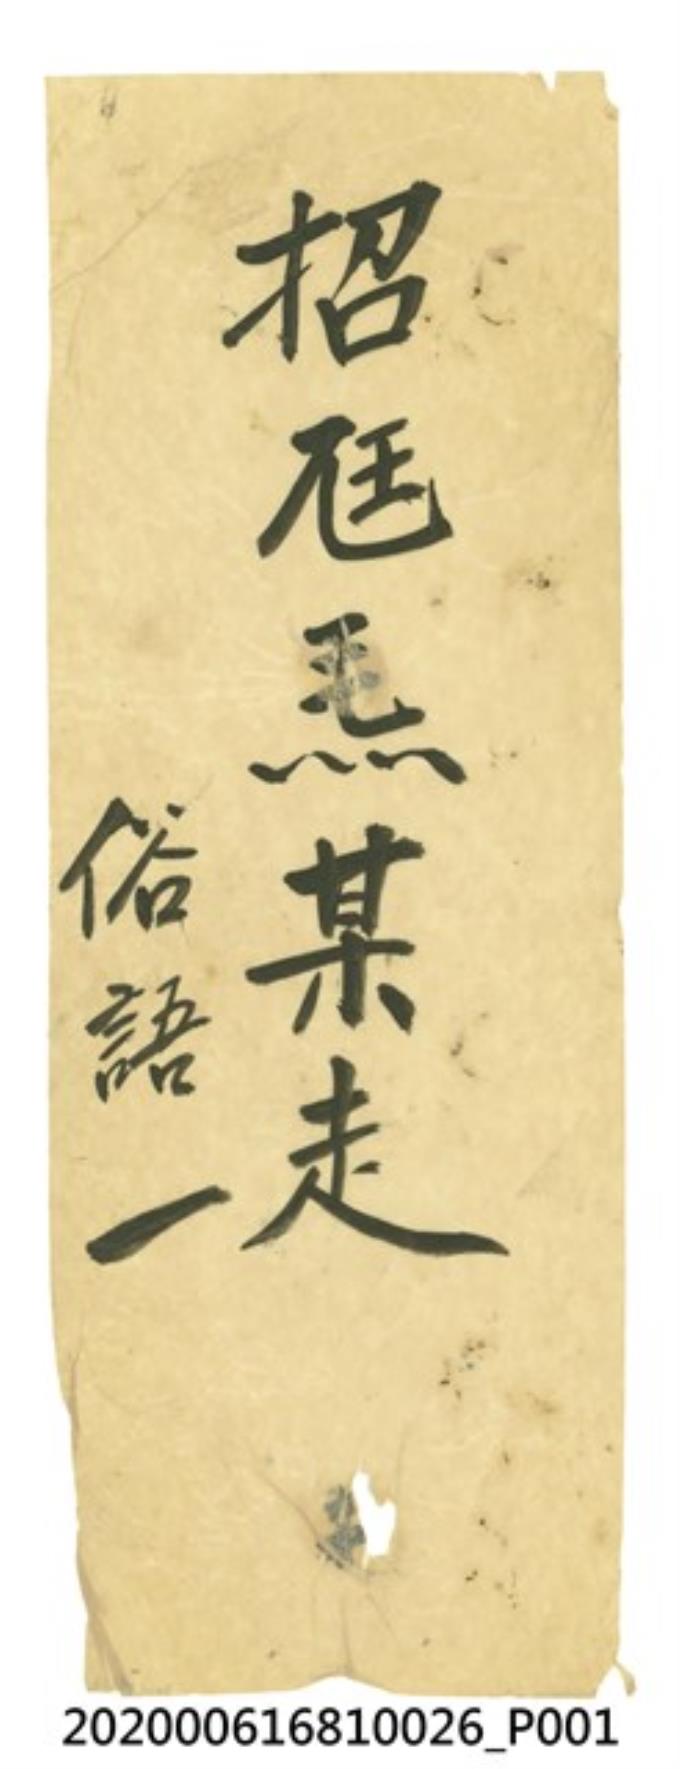 招尫𤆬某走
俗語一
202000616810026_P001